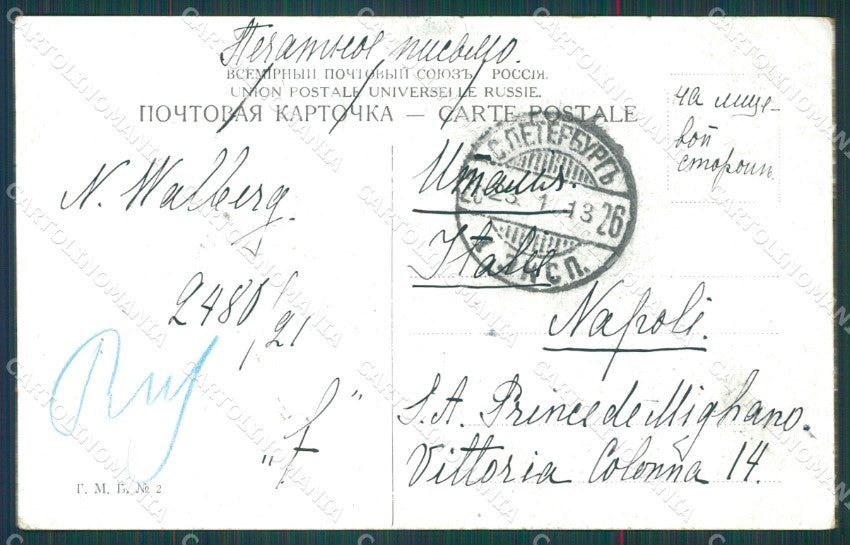 Печатное письмо.
ВСЕМІРНЫЙ ПОЧТОВЫЙ СОЮЗЪ. РОССІЯ.
UNION POSTALE UNIVERSELLE RUSSIE.
ПОЧТОВАЯ КАРТОЧКА — CARTE POSTALE
на лице-
вой
сторон.
С.ПЕТЕРБУРГЪ
26
N. Walberg.
Италия.
Italie
Napoli.
2480/21
S. A. Prince de Mighano.
Vittoria Colonna 14.
„f“
Г. М. Б. № 2
CARTOLINOMANIA